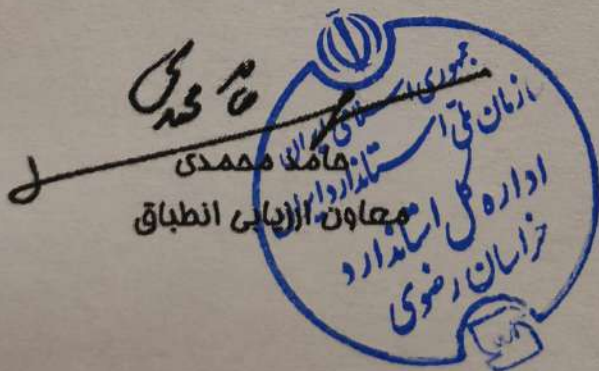 حامد محمدی
حامد محمدی
معاون ارزیابی انطباق
جمهوری اسلامی ایران
سازمان ملی استاندارد ایران
اداره کل استاندارد
خراسان رضوی